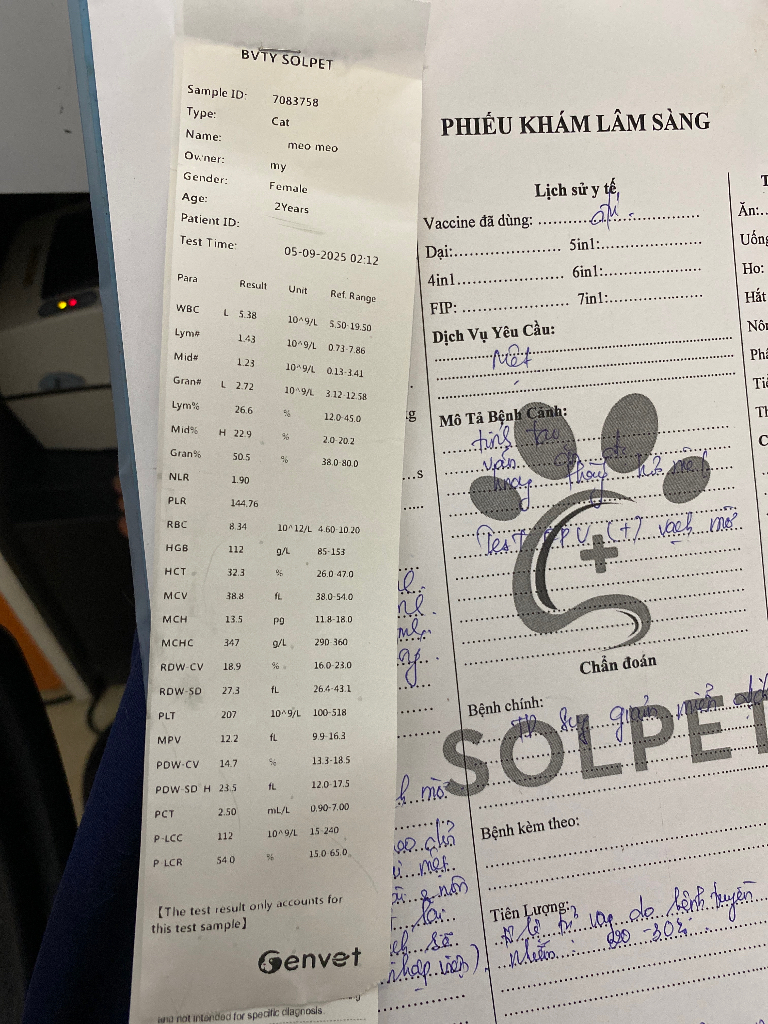 BVTY SOLPET
Sample ID: 7083758
Type: Cat
Name: meo meo
Owner: my
Gender: Female
Age: 2Years
Patient ID:
Test Time: 05-09-2025 02:12
Para Result Unit Ref. Range
WBC L 5.38 10^9/L 5.50-19.50
Lym# 1.43 10^9/L 0.73-7.86
Mid# 1.23 10^9/L 0.13-3.41
Gran# L 2.72 10^9/L 3.12-12.58
Lym% 26.6 % 12.0-45.0
Mid% H 22.9 % 2.0-20.2
Gran% 50.5 % 38.0-80.0
NLR 1.90
PLR 144.76
RBC 8.34 10^12/L 4.60-10.20
HGB 112 g/L 85-153
HCT 32.3 % 26.0-47.0
MCV 38.8 fL 38.0-54.0
MCH 13.5 pg 11.8-18.0
MCHC 347 g/L 290-360
RDW-CV 18.9 % 16.0-23.0
RDW-SD 27.3 fL 26.4-43.1
PLT 207 10^9/L 100-518
MPV 12.2 fL 9.9-16.3
PDW-CV 14.7 % 13.3-18.5
PDW-SD H 23.5 fL 12.0-17.5
PCT 2.50 mL/L 0.90-7.00
P-LCC 112 10^9/L 15-240
P-LCR 54.0 % 15.0-65.0
【The test result only accounts for
this test sample】
Genvet
and not intended for specific diagnosis
PHIẾU KHÁM LÂM SÀNG
Lịch sử y tế
Vaccine đã dùng:
Dại: 5in1:
4in1 6in1:
FIP: 7in1:
Dịch Vụ Yêu Cầu:
mệt
Mô Tả Bệnh Cảnh:
tỉnh táo
vẫn
Test FPV (+) vạch mờ
Chẩn đoán
Bệnh chính:
suy giảm miễn
SOLPET
Bệnh kèm theo:
Tiên Lượng:
do bệnh truyền
nhiễm
Ăn:
Uống
Ho:
Hắt
Nôn